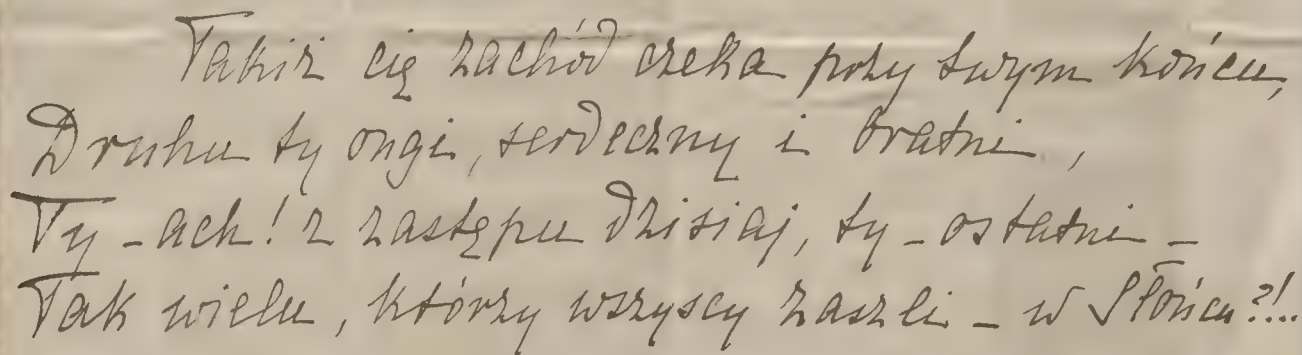 Takiż cię zachód czeka przy swym końcu,
Druhu ty ongi, serdeczny i bratni,
Ty - ach! z zastępu dzisiaj, ty - ostatni -
Tak wielu, którzy wszyscy zaszli - w Słońcu?!..